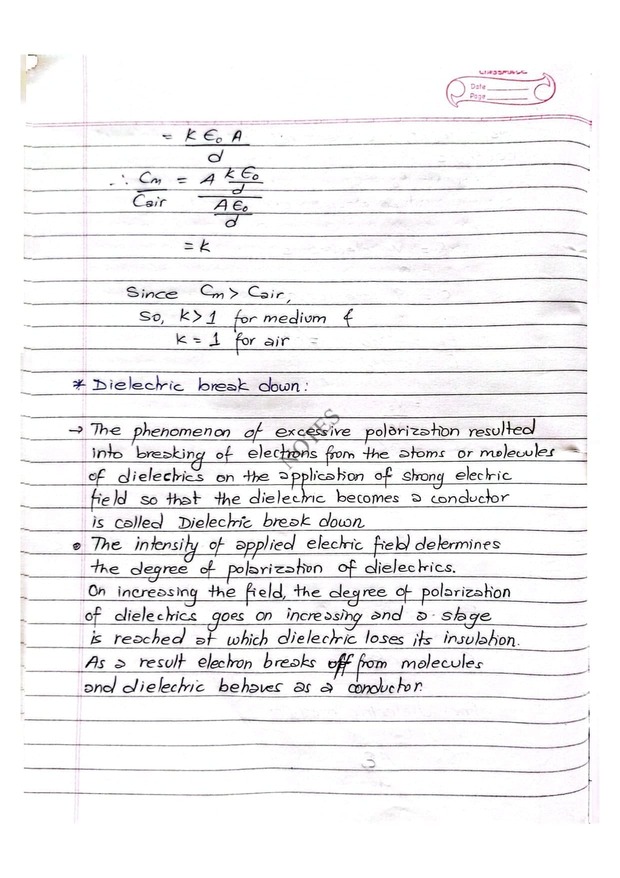 classmate
Date
Page
= K ϵ₀ A
d
∴ Cm = A K ϵ₀
d
Cair A ϵ₀
d
= K
Since Cm > Cair,
So, K > 1 for medium &
K = 1 for air =
* Dielectric break down:
→ The phenomenon of excessive polarization resulted
into breaking of electrons from the atoms or molecules
of dielectrics on the application of strong electric
field so that the dielectric becomes a conductor
is called Dielectric break down
NOTES
• The intensity of applied electric field determines
the degree of polarization of dielectrics.
On increasing the field, the degree of polarization
of dielectrics goes on increasing and a stage
is reached at which dielectric loses its insulation.
As a result electron breaks off from molecules
and dielectric behaves as a conductor.
3